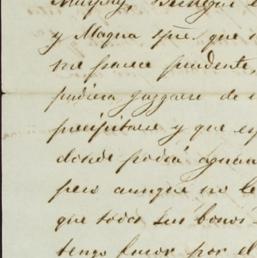 y Magna spre. que
me parece prudente,
pudiera juzgarse de
precipitar y que es
donde podia aguan
pero aunque no le
que todos sus bonos
tengo favor por el